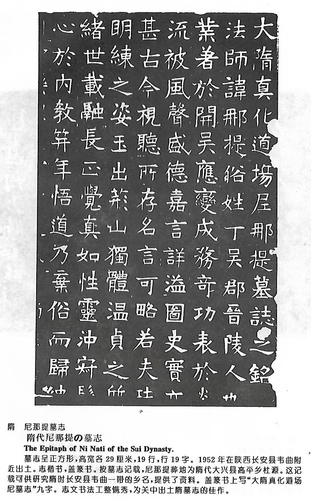 大隋真化道場尼那提墓誌之銘
法師諱那提俗姓丁吳郡晉陵人
業著於開吳應變成務奇功表於
流被風聲盛德嘉言詳溢圖史實
甚古今視聽所存名言可略若夫
明練之姿玉出荊山獨體溫貞之
緒世載融長正覺真如性靈沖
心於內教笄年悟道乃棄俗而歸
隋 尼那提墓志
隋代尼那提の墓志
The Epitaph of Ni Nati of the Sui Dynasty.
墓志呈正方形，高宽各29厘米，19行，行19字。1952年在陕西长安县韦曲附
近出土。志楷书，盖篆书。按墓志记载，尼那提葬地为隋代大兴县高平乡杜源。这记
载可供研究隋时长安县韦曲一带的乡名，提供了资料。墓盖篆书上写“大隋真化道场
尼墓志”九字。志文书法工整隽秀，为关中出土隋墓志的佳作。